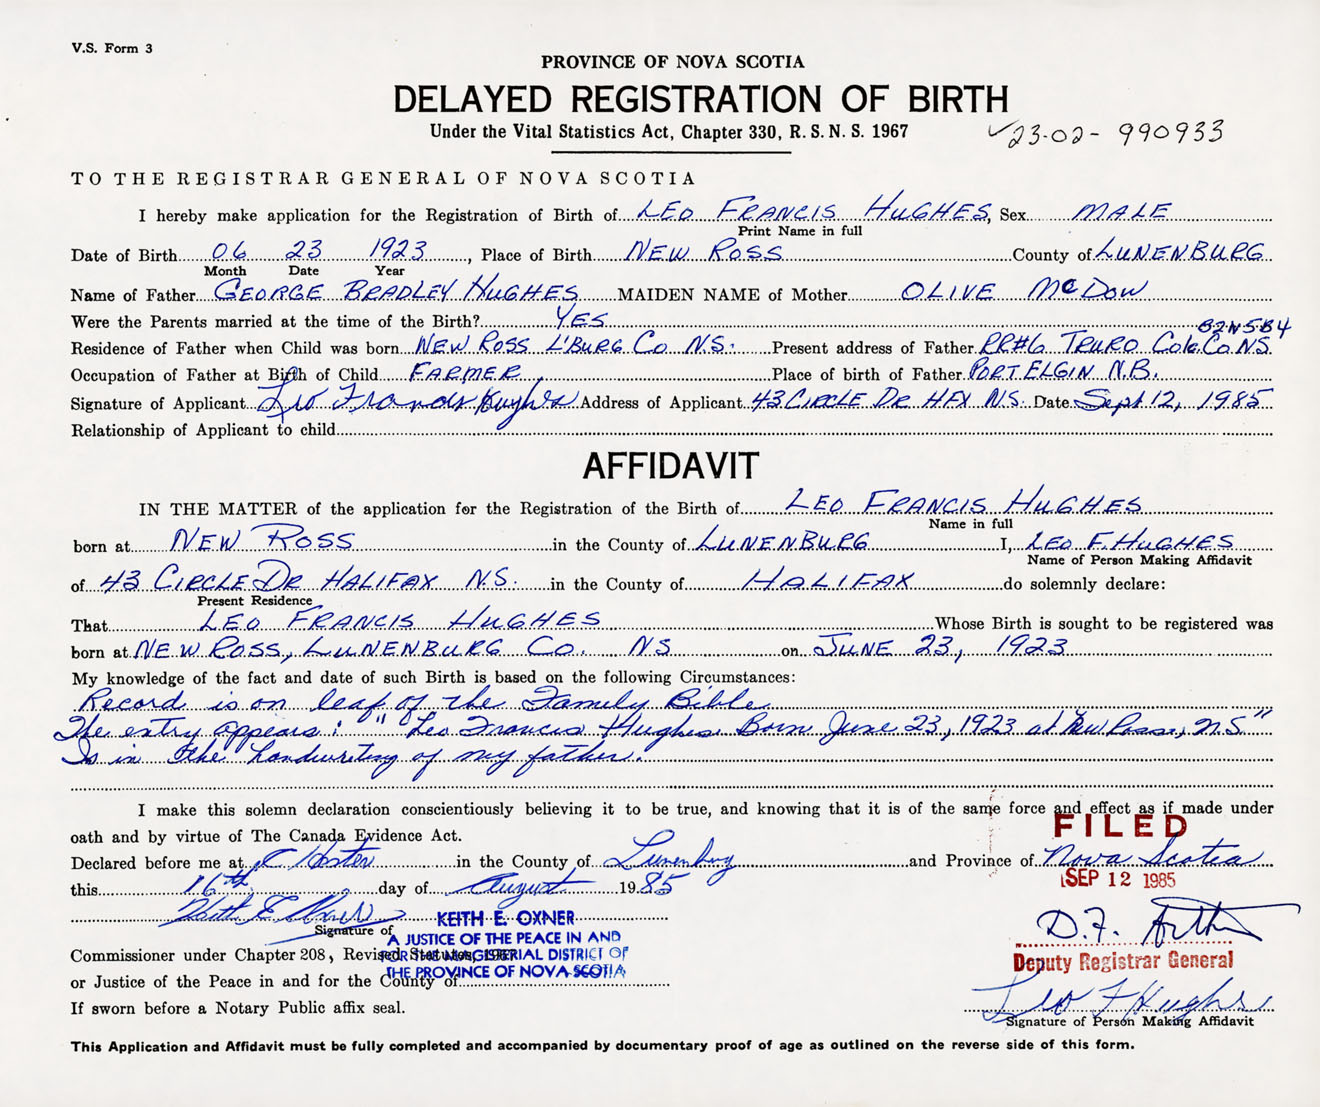 V.S. Form 3
PROVINCE OF NOVA SCOTIA
DELAYED REGISTRATION OF BIRTH
Under the Vital Statistics Act, Chapter 330, R.S.N.S. 1967
✓23-02-990933
TO THE REGISTRAR GENERAL OF NOVA SCOTIA
I hereby make application for the Registration of Birth of LEO FRANCIS HUGHES, Sex MALE
Print Name in full
Date of Birth 06 23 1923, Place of Birth NEW ROSS County of LUNENBURG
Month Date Year
Name of Father GEORGE BRADLEY HUGHES MAIDEN NAME of Mother OLIVE McDOW
Were the Parents married at the time of the Birth? YES
B2N5B4
Residence of Father when Child was born NEW ROSS L'BURG CO N.S. Present address of Father RR#6 TRURO COL. CO N.S.
Occupation of Father at Birth of Child FARMER Place of birth of Father PORT ELGIN N.B.
Signature of Applicant Leo Francis Hughes Address of Applicant 43 CIRCLE DR HFX N.S. Date Sept 12, 1985
Relationship of Applicant to child
AFFIDAVIT
IN THE MATTER of the application for the Registration of the Birth of LEO FRANCIS HUGHES
Name in full
born at NEW ROSS in the County of LUNENBURG I, LEO F. HUGHES
Name of Person Making Affidavit
of 43 CIRCLE DR HALIFAX N.S. in the County of HALIFAX do solemnly declare:
Present Residence
That LEO FRANCIS HUGHES Whose Birth is sought to be registered was
born at NEW ROSS, LUNENBURG CO. NS on JUNE 23, 1923
My knowledge of the fact and date of such Birth is based on the following Circumstances:
Record is on leaf of the Family Bible
The entry appears: "Leo Francis Hughes Born June 23, 1923 at New Ross, N.S."
Is in the handwriting of my father.
I make this solemn declaration conscientiously believing it to be true, and knowing that it is of the same force and effect as if made under
oath and by virtue of The Canada Evidence Act.
FILED
Declared before me at Chester in the County of Lunenburg and Province of Nova Scotia
SEP 12 1985
this 16th day of August 1985
Keith E. Oxner
KEITH E. OXNER
Signature of
A JUSTICE OF THE PEACE IN AND
D.F. Arthur
Commissioner under Chapter 208, Revised Statutes,
FOR THE MAGISTERIAL DISTRICT OF
Deputy Registrar General
THE PROVINCE OF NOVA SCOTIA
or Justice of the Peace in and for the County of
Leo F Hughes
If sworn before a Notary Public affix seal.
Signature of Person Making Affidavit
This Application and Affidavit must be fully completed and accompanied by documentary proof of age as outlined on the reverse side of this form.